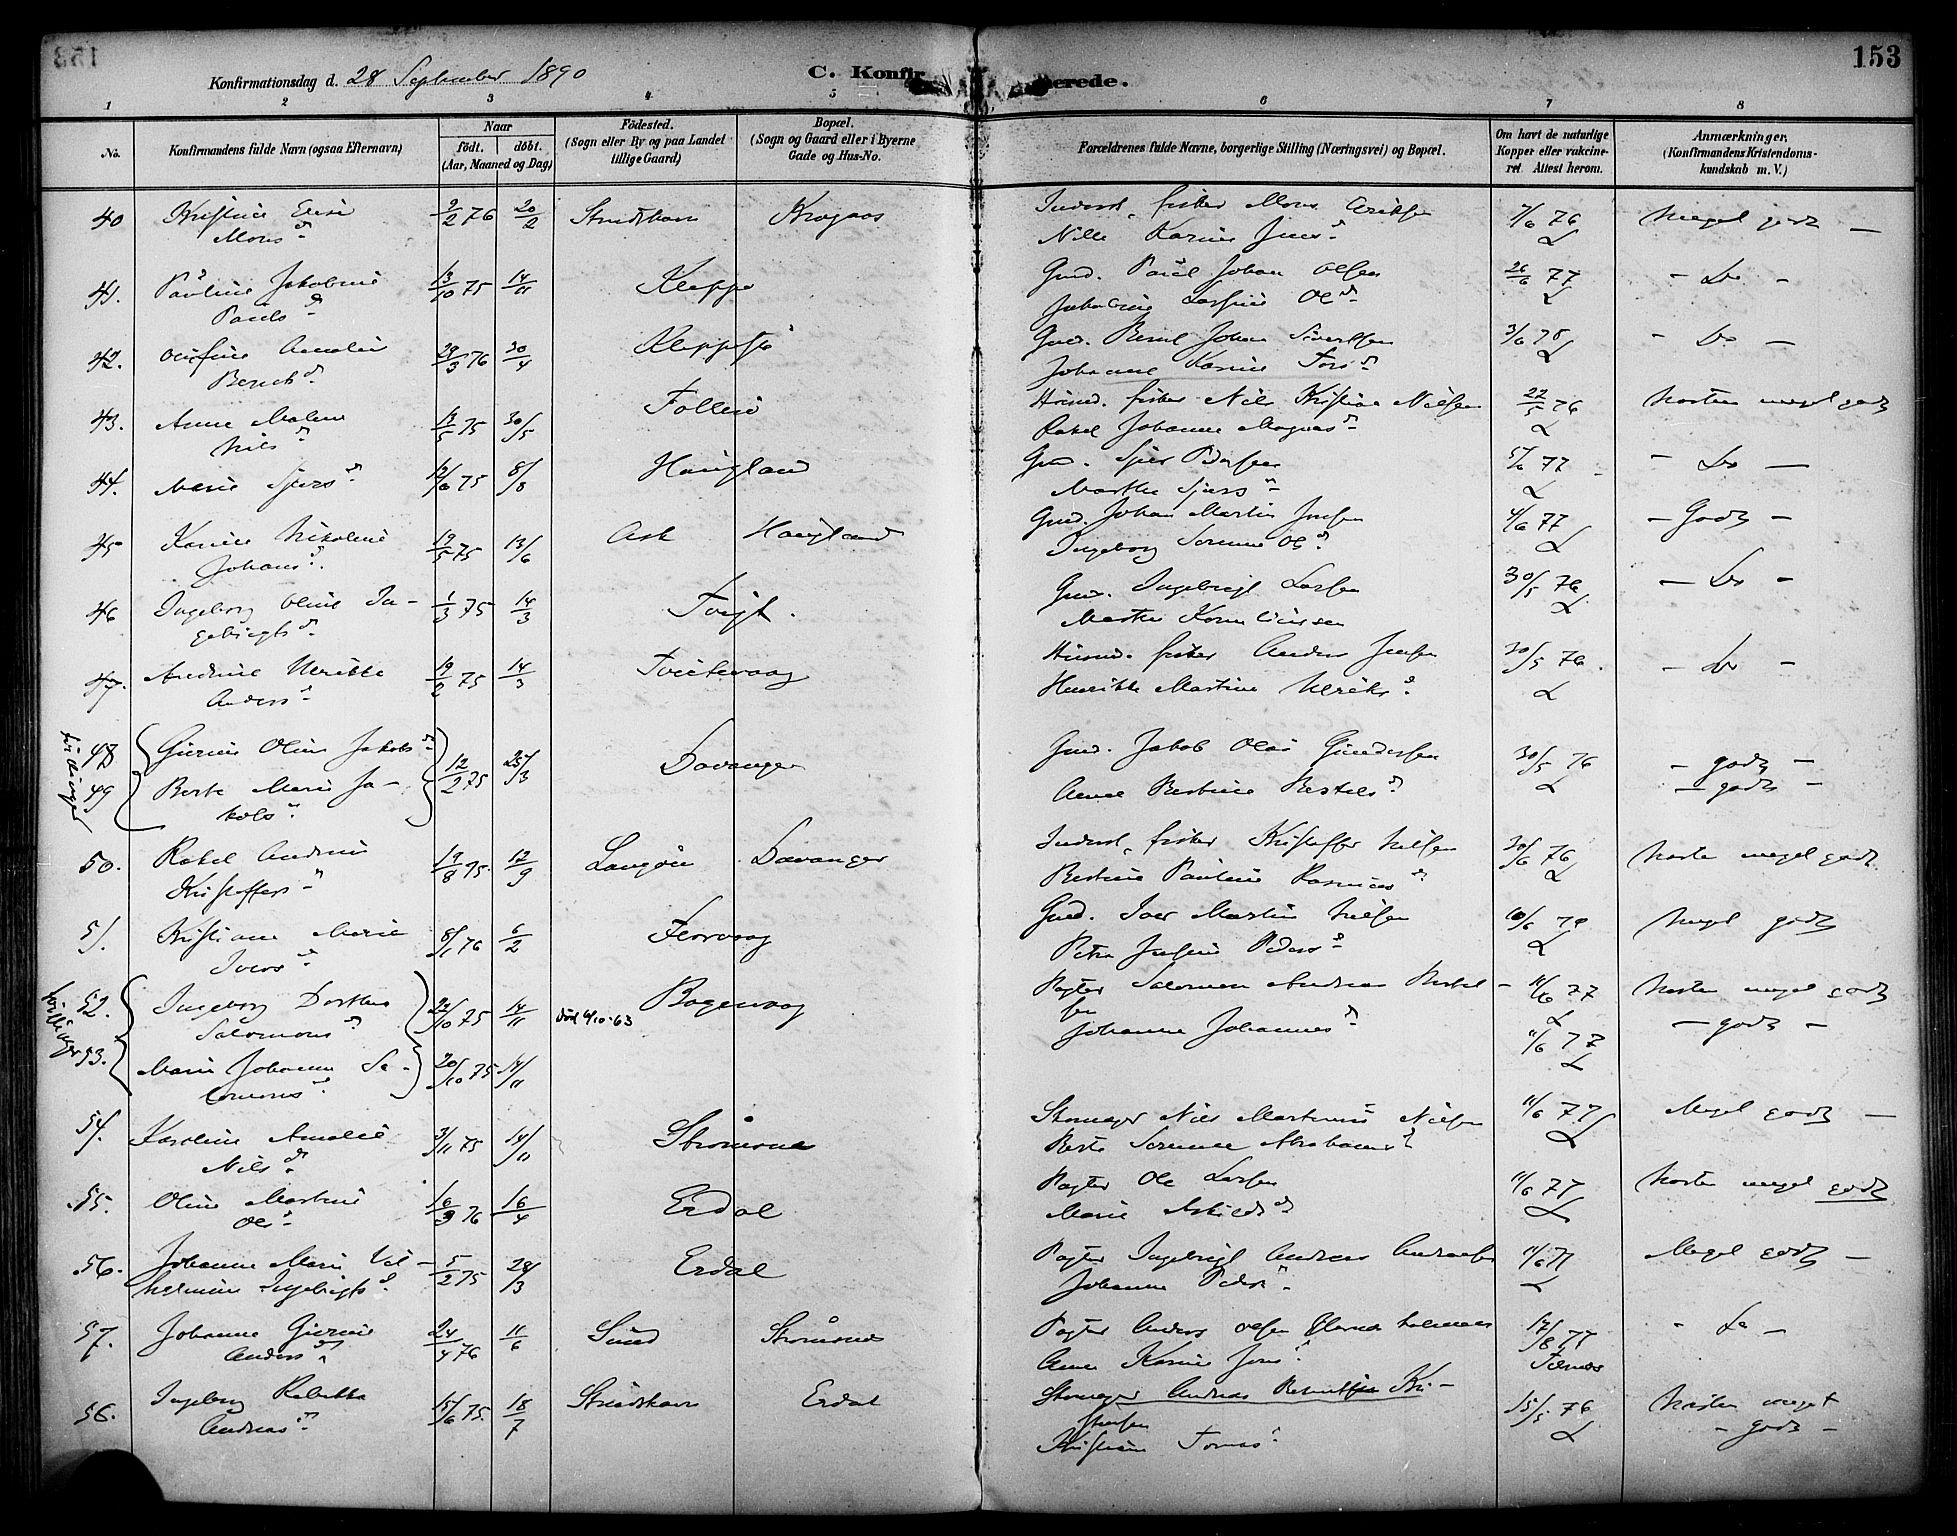 153
Konfirmationsdag d. 28 September 1890
C. Konfir merede.
1 2 3 4 5 6 7 8
No.
Konfirmandens fulde Navn (ogsaa Efternavn)
Naar
født. døbt.
(Aar, Maaned og Dag)
Fødested.
(Sogn eller By og paa Landet
tillige Gaard)
Bopæl.
(Sogn og Gaard eller i Byerne
Gade og Hus-No.
Forældrenes fulde Navne, borgerlige Stilling (Næringsvei) og Bopæl.
Om havt de naturlige
Kopper eller vakcine-
ret. Attest herom.
Anmærkninger,
(Konfirmandens Kristendoms-
kundskab m. V.)
40 Kristine Elisi 9/2 76 20/2 Strudshavn Kragaas fisker Mons Eriksen 7/6 76 Meget godt —
Mons d. Nille Karine Jens d.
41. Pauline Jakobine 13/10 75 14/11 Kleppe Gmd. Paul Johan Olsen 26/6 77 – Do –
Pauls d. Jakobine Olsd.
42. Amalie 29/3 76 30/4 Kleppestø Gmd. Berent Johan Sivertsen 3/6 78 – Do –
Berents d. Johanne Karine Tors d.
43. Anne Malene 13/5 75 30/5 Follesø Husmd. fisker Nils Kristian Nielsen 22/5 76 Næsten meget godt
Nils d. Rakel Johanne Magnus d.
44. Marie Sjurs d. 12/6 75 8/8 Haugland Gmd. Sjur Pedersen 5/6 77 – Do –
Marthe Sjurs d.
45 Karine Nikoline 19/5 75 13/6 Ask Haugland Gmd. Johan Martin Jensen 4/6 77 – Godt –
Johans d. Ingeborg Serene Ols d.
46 Ingeborg Oline In- 1/3 75 14/3 Tveit. Gmd. Ingebrigt Larsen 30/5 76 – Do –
gebrigts d. Marthe
47. Andrine Ulrikke 19/2 75 14/3 Tveitevaag Husmd. fisker Anders Jensen 30/5 76. – Do –
Anders d. Henrikke Martine Ulriks d.
48 Gurine Oline Jakobs d. 12/2 75 25/3 Davanger Gmd. Jakob Olai Gundersen 30/5 76 – godt –
49 Berte Marie Ja- Anne Bertine Bertels d. – godt –
kobs d.
50. Rakel Andrine 19/8 75 12/9 Langøen Davanger fisker Kristoffer Nilsen 30/6 76 Næsten meget godt.
Kristoffers d. Bertine Pauline Rasmus d.
51. Kristiane Marie 8/1 76 6/2 Florvaag Gmd. Iver Martin Nilsen 10/6 78 Meget godt
Ivers d. Petra Peders d.
52. Ingeborg Dorthea 22/10 75 14/11 død 4/10-63 Bagervaag Pagter Salomon Andreas Bertel- 11/6 77 Næsten meget godt
Salomons d. sen
Johanne Johannes d. 11/6 77 – godt –
tvillinger
53. Marie Johanne Sa- 20/10 75 14/11
lomons d.
54. Karoline Amalie 3/11 75 14/11 Strømsnes Nils Martinus Nielsen 11/6 77 Meget godt —
Nils d. Berte Serene Abrahams d.
55. Oline Martine 16/3 76 16/4 Erdal Pagter Ole Larsen 11/6 77 Næsten meget godt
Ols d. Marie Askilds d.
56. Johanne Marie Vil- 5/2 75 28/3 Erdal Pagter Ingebrigt Andreas Andreassen 11/6 77 Meget godt –
helmine Ingebrigts d. Johanne Peders d.
57. Johanne Gurine 24/4 76 11/6 Sund Strømsnes Pagter Anders Olsen 17/8 77 – Do –
Anders d. Anne Karine Jens d.
58. Ingeborg Rebekka 15/6 75 18/7 Strudshavn Erdal Andreas Kri- 15/5 76 Næsten meget
Andreas d. stensen – godt –